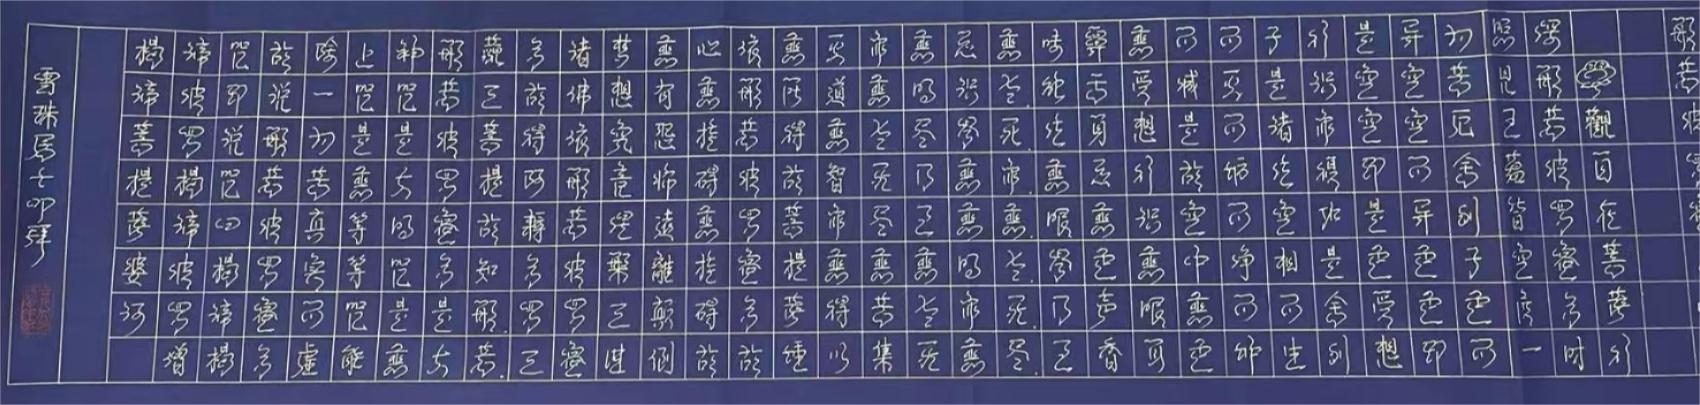 觀自在菩薩行
深般若波羅蜜多時
照見五蘊皆空度一
切苦厄舍利子色不
異空空不異色色即
是空空即是色受想
行識亦復如是舍利
子是諸法空相不生
不滅不垢不淨不增
不減是故空中無色
無受想行識無眼耳
鼻舌身意無色聲香
味觸法無眼界乃至
無老死亦無老死盡
意識界無無明亦無
無明盡乃至無老死
亦無老死盡無苦集
滅道無智亦無得以
無所得故菩提薩埵
依般若波羅蜜多故
心無罣礙無罣礙故
無有恐怖遠離顛倒
夢想究竟涅槃三世
諸佛依般若波羅蜜
多故得阿耨多羅三
藐三菩提故知般若
般若波羅蜜多是大
神咒是大明咒是無
上咒是無等等咒能
除一切苦真實不虛
故說般若波羅蜜多
咒即說咒曰揭諦揭
諦波羅揭諦波羅僧
揭諦菩提薩婆訶
雪珠居士叩拜